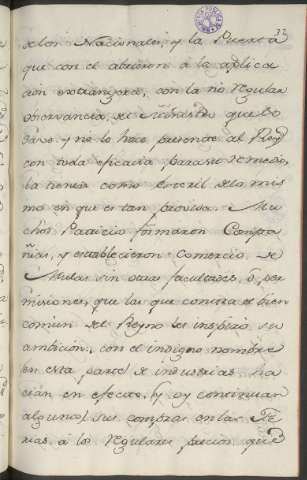 32
de los Nacionales, y la Puerta
que con el abrieron á la aplica
cion extrangera, con la no regular
observancia, del Ministro que
y no lo hace presente al Rey
con toda eficacia para su remedio,
la tienen como esteril de lo mis
mo en que es tan provisa. Mu
chos Patricios formaron Compa
ñias, y establecieron Comercio de
Mulas sin otras facultades, ó per
misiones, que las que contra el bien
comun del Reyno les inspiró su
ambicion, con el indigno nombre
en esta parte de industrias. Ha
cian en efecto, (y oy continuan
algunos) sus compras en las Fe
rias á los regulares precios que